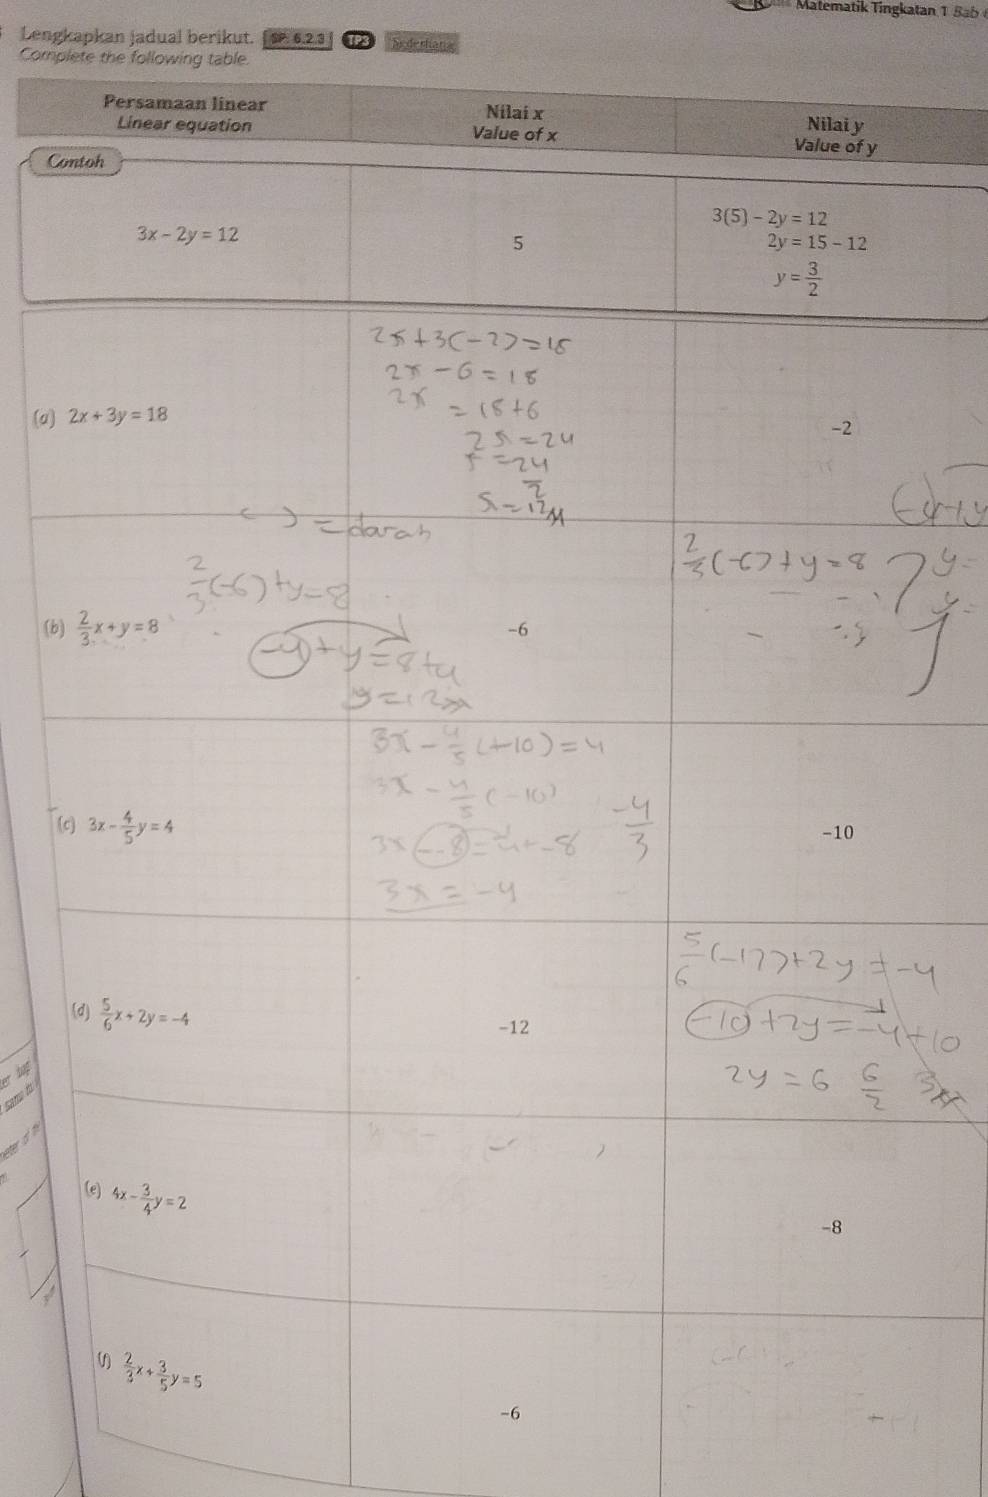 Matematik Tingkatan 1 Bab
Lengkapkan jadual berikut. SP: 6.2.3 TP3 Sederhana
Complete the following table.
Persamaan linear
Linear equation
Nilai x
Value of x
Nilai y
Value of y
Contoh
3x − 2y = 12
5
3(5) − 2y = 12
2y = 15 − 12
y = 3/2
(a) 2x + 3y = 18
2x + 3(-2) = 18
2x - 6 = 18
2x = 18 + 6
2x = 24
x = 24/2
x = 12
−2
( ) = darab
(b) 2/3 x + y = 8
2/3 (-6) + y = 8
-4 + y = 8 + 4
y = 12
−6
2/3 (-6) + y = 8
y =
y =
(c) 3x − 4/5 y = 4
3x - 4/5 (-10) = 4
3x - 4/5 (-10)
3x - -8 = 4 + -8
3x = -4
-4/3
−10
(d) 5/6 x + 2y = −4
−12
5/6 (-12) + 2y = -4
-10 + 2y = -4 + 10
2y = 6 6/2 3
(e) 4x − 3/4 y = 2
−8
(f) 2/3 x + 3/5 y = 5
−6